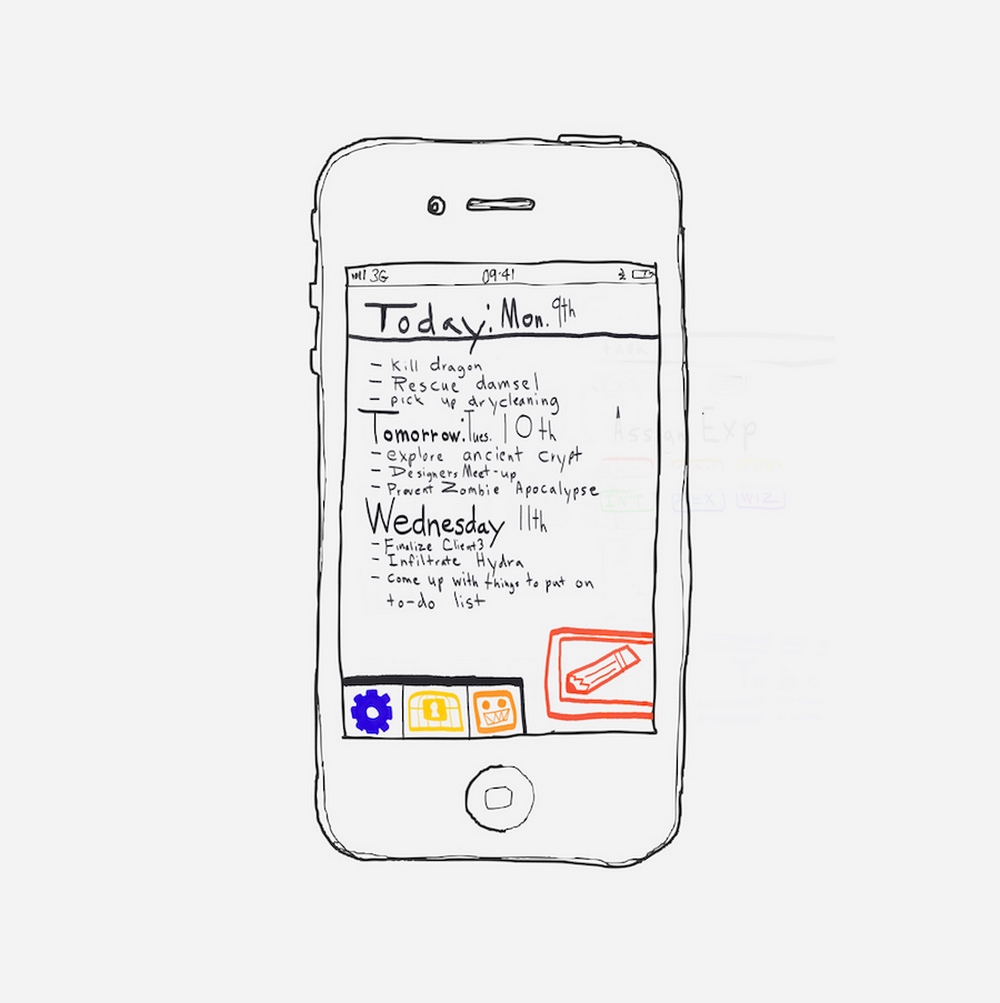 3G 09:41
Today: Mon. 9th
- Kill dragon
- Rescue damsel
- pick up drycleaning
Tomorrow: Tues. 10th
- explore ancient crypt
- Designers Meet-up
- Prevent Zombie Apocalypse
Wednesday 11th
- Finalize Client3
- Infiltrate Hydra
- Come up with things to put on
to-do list
Assign Exp
INT DEX WIZ